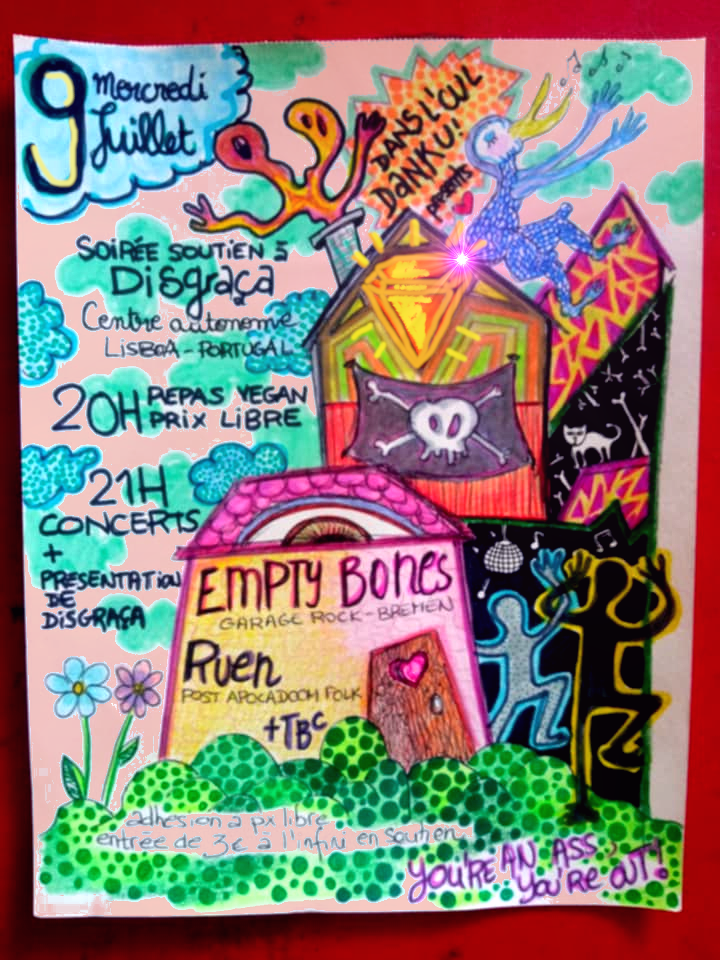 9 Mercredi
Juillet
DANS L'CUL
DANKU!
presents
SOIRÉE SOUTIEN à
Disgraça
Centre autonome
LISBOA - PORTUGAL
20H REPAS VEGAN
PRIX LIBRE
21H
CONCERTS
+
PRESENTATION
DE
DISGRAÇA
EMPTY BONES
GARAGE ROCK - BREMEN
Ruen
POST APOCADOOM FOLK
+TBC
adhésion à px libre
entrée de 3€ à l'infini en soutien.
YOU'RE AN ASS,
YOU'RE OUT!